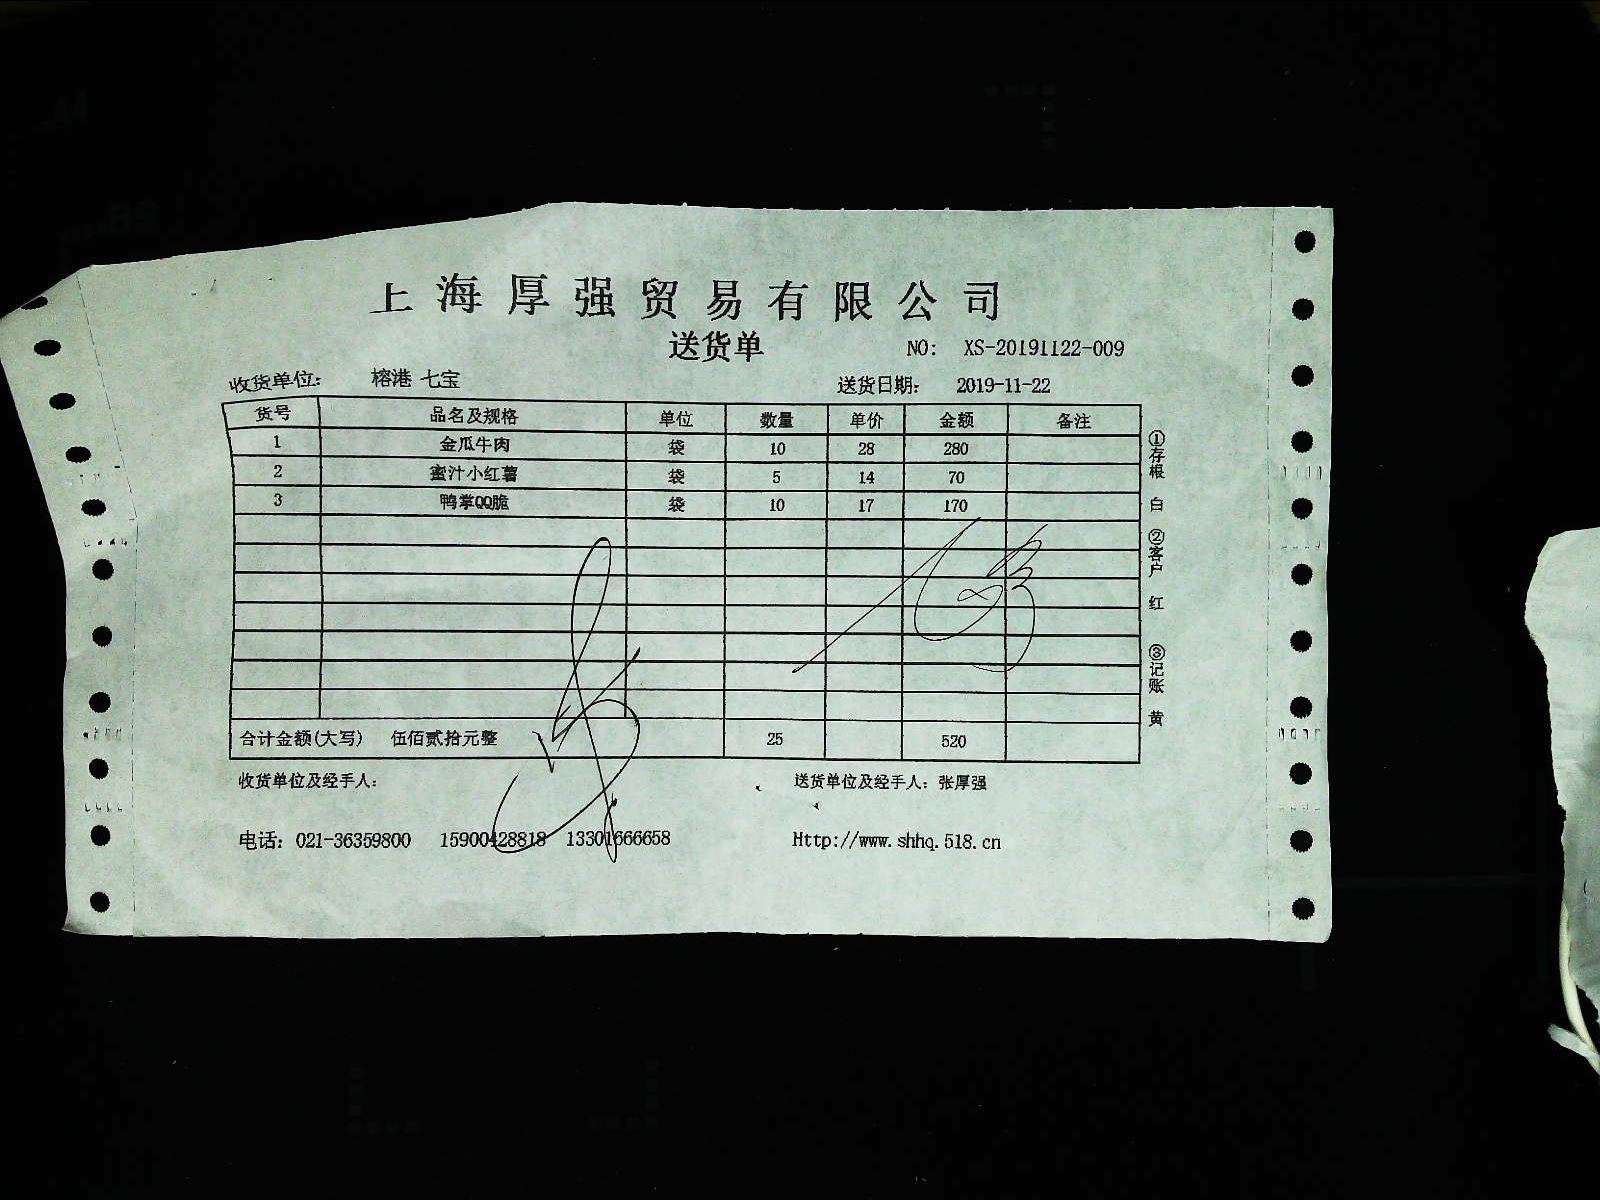 上海厚强贸易有限公司
送货单
NO: XS-20191122-009
收货单位: 榕港 七宝 送货日期: 2019-11-22
货号 品名及规格 单位 数量 单价 金额 备注
1 金瓜牛肉 袋 10 28 280
2 蜜汁小红薯 袋 5 14 70
3 鸭掌QQ脆 袋 10 17 170
合计金额(大写) 伍佰贰拾元整 25 520
收货单位及经手人: 送货单位及经手人: 张厚强
电话: 021-36359800 15900428818 13301666658 Http://www.shhq.518.cn
①存根 白 ②客户 红 ③记账 黄